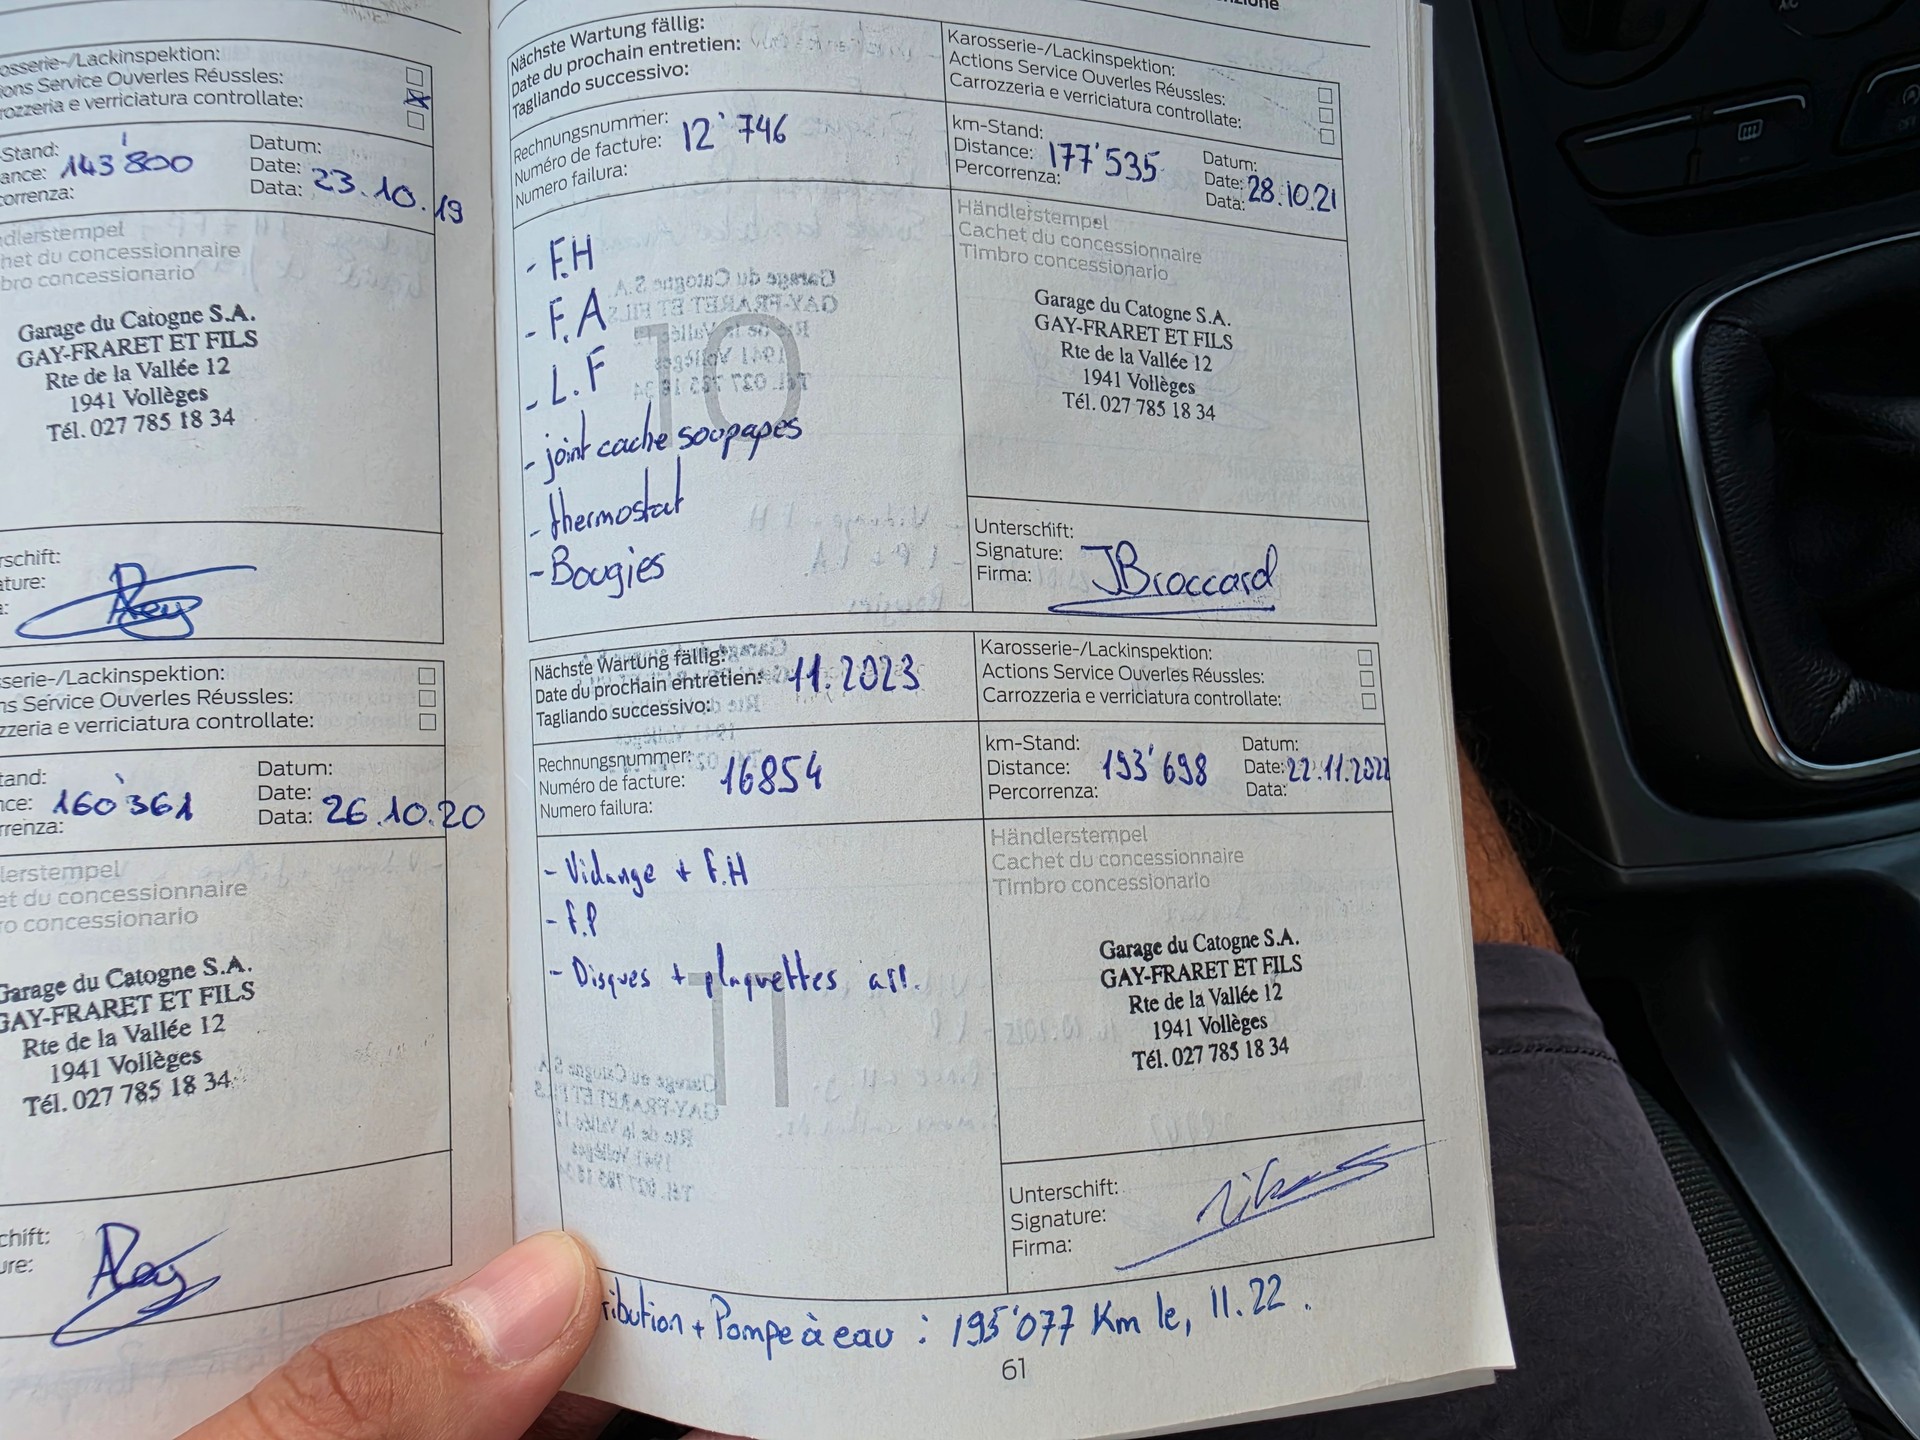 osserie-/Lackinspektion:
ions Service Ouverles Réussles:
rozzeria e verriciatura controllate:
-Stand:
ance: 143'800
correnza:
Datum:
Date: 23.10.19
Data:
dlerstempel
het du concessionnaire
bro concessionario
Garage du Catogne S.A.
GAY-FRARET ET FILS
Rte de la Vallée 12
1941 Vollèges
Tél. 027 785 18 34
rschift:
ature:
a:
sserie-/Lackinspektion:
ns Service Ouverles Réussles:
zzeria e verriciatura controllate:
tand:
nce: 160'361
rrenza:
Datum:
Date:
Data: 26.10.20
lerstempel
et du concessionnaire
ro concessionario
Garage du Catogne S.A.
GAY-FRARET ET FILS
Rte de la Vallée 12
1941 Vollèges
Tél. 027 785 18 34
chift:
ure:
Nächste Wartung fällig:
Date du prochain entretien:
Tagliando successivo:
Karosserie-/Lackinspektion:
Actions Service Ouverles Réussles:
Carrozzeria e verriciatura controllate:
Rechnungsnummer:
Numéro de facture: 12'746
Numero failura:
km-Stand:
Distance: 177'535
Percorrenza:
Datum:
Date: 28.10.21
Data:
10
- F.H
- F.A
- L.F
- joint cache soupapes
- thermostat
- Bougies
Händlerstempel
Cachet du concessionnaire
Timbro concessionario
Garage du Catogne S.A.
GAY-FRARET ET FILS
Rte de la Vallée 12
1941 Vollèges
Tél. 027 785 18 34
Unterschift:
Signature: JBroccard
Firma:
Nächste Wartung fällig:
Date du prochain entretien: 11.2023
Tagliando successivo:
Karosserie-/Lackinspektion:
Actions Service Ouverles Réussles:
Carrozzeria e verriciatura controllate:
Rechnungsnummer:
Numéro de facture: 16854
Numero failura:
km-Stand:
Distance: 193'698
Percorrenza:
Datum:
Date: 22.11.2022
Data:
11
- Vidange + F.H
- F.P
- Disques + plaquettes arr.
Händlerstempel
Cachet du concessionnaire
Timbro concessionario
Garage du Catogne S.A.
GAY-FRARET ET FILS
Rte de la Vallée 12
1941 Vollèges
Tél. 027 785 18 34
Unterschift:
Signature:
Firma:
ribution + Pompe à eau : 195'077 Km le, 11.22.
61